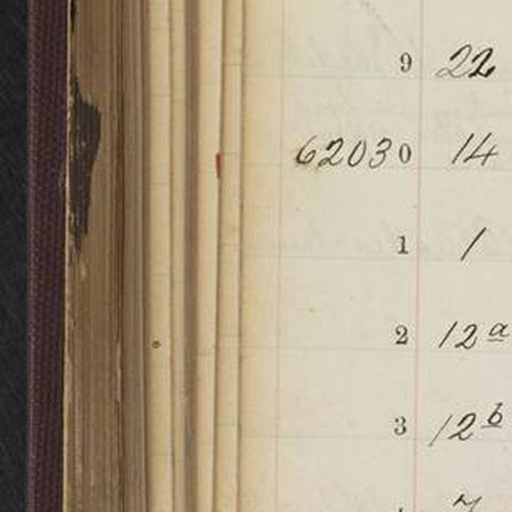 9 22
62030 14
1 1
2 12a
3 12b